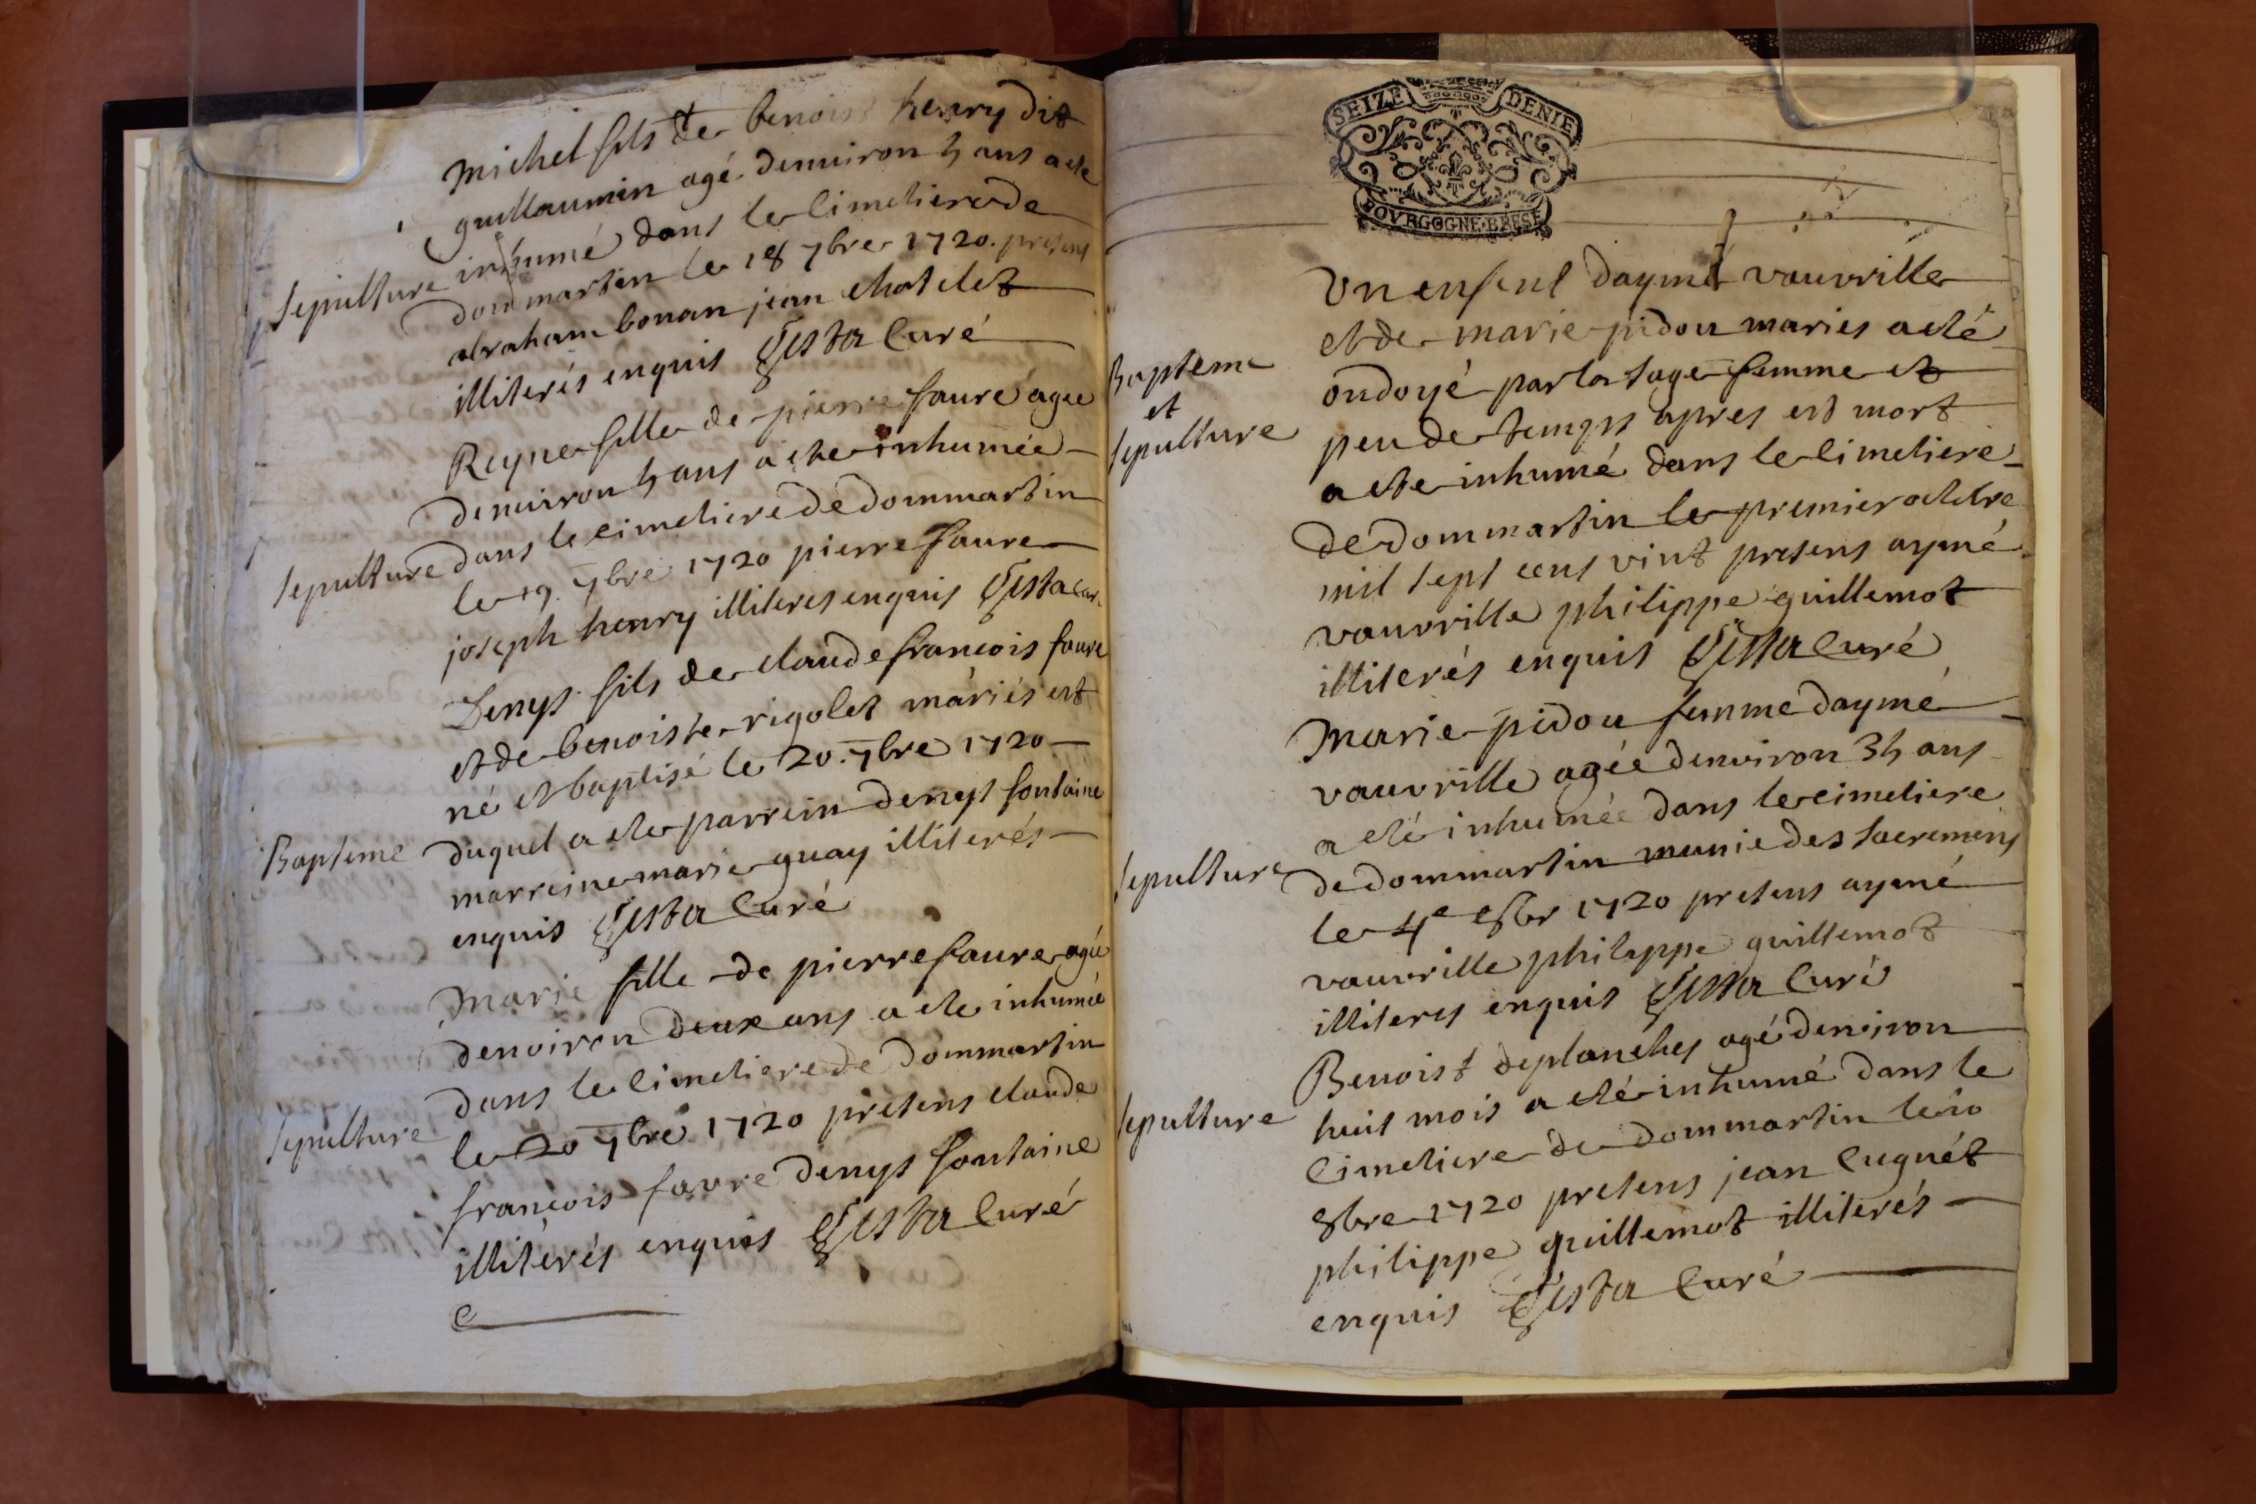 Michel fils de benoist henry dit
guillaumin agé denuiron 5 ans a ete
Sepulture
inhumé dans le Cimetiere de
dommartin le 18 7bre 1720. presens
abraham bonan jean chatelet
illiterés enquis Gista Curé
Reyne fille de pierre faure agee
denuiron 5 ans a ete inhumée
Sepulture
dans le cimetiere de dommartin
le 19. 7bre 1720 pierre faure
joseph henry illiteres enquis Gista Cur.
Denys fils de claude françois faure
et de benoiste rigolet mariés est
né et baptisé le 20. 7bre 1720
Bapteme
duquel a ete parrein denys fontaine
marreine marie guay illiterés
enquis Gista Curé
Marie fille de pierre faure agée
denviron deux ans a ete inhumée
dans le Cimetiere de dommartin
Sepulture
le 20 7bre 1720 presens claude
françois favre denys fontaine
illiterés enquis Gista Curé
SEIZE DENIE
BOVRGOGNE·BRESE
Un enfent daymé vauvrille
et de marie pidou mariés a eté
Bapteme
et
Sepulture
ondoyé par la sage femme et
peu de temps apres est mort
a ete inhumé dans le Cimetiere
de dommartin le premier octobre
mil sept cens vint presens aymé
vauvrille philippe guillemot
illiterés enquis Gista Curé
Marie pidou femme daymé
vauvrille agée denviron 35 ans
a eté inhumée dans le cimetiere
Sepulture
de dommartin munie des sacremens
le 4e 8bre 1720 presens aymé
vauvrille philippe guillemot
illiteres enquis Gista Curé
Benoist deplanches agé denviron
Sepulture
huit mois a eté inhumé dans le
Cimetiere de dommartin le 10
8bre 1720 presens jean Cugnét
philippe guillemot illiterés
enquis Gista Curé